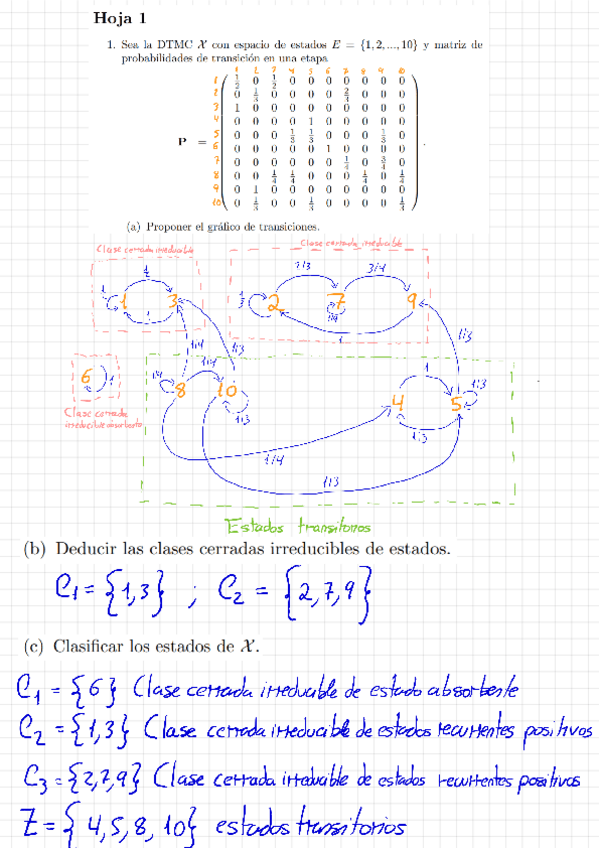 Hoja 1
1. Sea la DTMC X con espacio de estados E = {1, 2, ..., 10} y matriz de
probabilidades de transición en una etapa
1 2 3 4 5 6 7 8 9 10
1 1/2 0 1/2 0 0 0 0 0 0 0
2 0 1/3 0 0 0 0 2/3 0 0 0
3 1 0 0 0 0 0 0 0 0 0
4 0 0 0 0 1 0 0 0 0 0
5 0 0 0 1/3 1/3 0 0 0 1/3 0
P = 6 0 0 0 0 0 1 0 0 0 0 .
7 0 0 0 0 0 0 1/4 0 3/4 0
8 0 0 1/4 1/4 0 0 0 1/4 0 1/4
9 0 1 0 0 0 0 0 0 0 0
10 0 1/3 0 0 1/3 0 0 0 0 1/3
(a) Proponer el gráfico de transiciones.
Clase cerrada irreducible
Clase cerrada irreducible
1/2 1/3 3/4
1 3 1/3 2 7 9
1 1/4 1
1/4 1/3 1/3
6 1 1/4 1/4 1 1/3
8 10 4 5
Clase cerrada
irreducible absorbente
1/3 1/3
1/4
1/3
Estados transitorios
(b) Deducir las clases cerradas irreducibles de estados.
C1 = {1,3} ; C2 = {2,7,9}
(c) Clasificar los estados de X.
C1 = {6} Clase cerrada irreducible de estado absorbente
C2 = {1,3} Clase cerrada irreducible de estados recurrentes positivos
C3 = {2,7,9} Clase cerrada irreducible de estados recurrentes positivos
Z = {4,5,8,10} estados transitorios